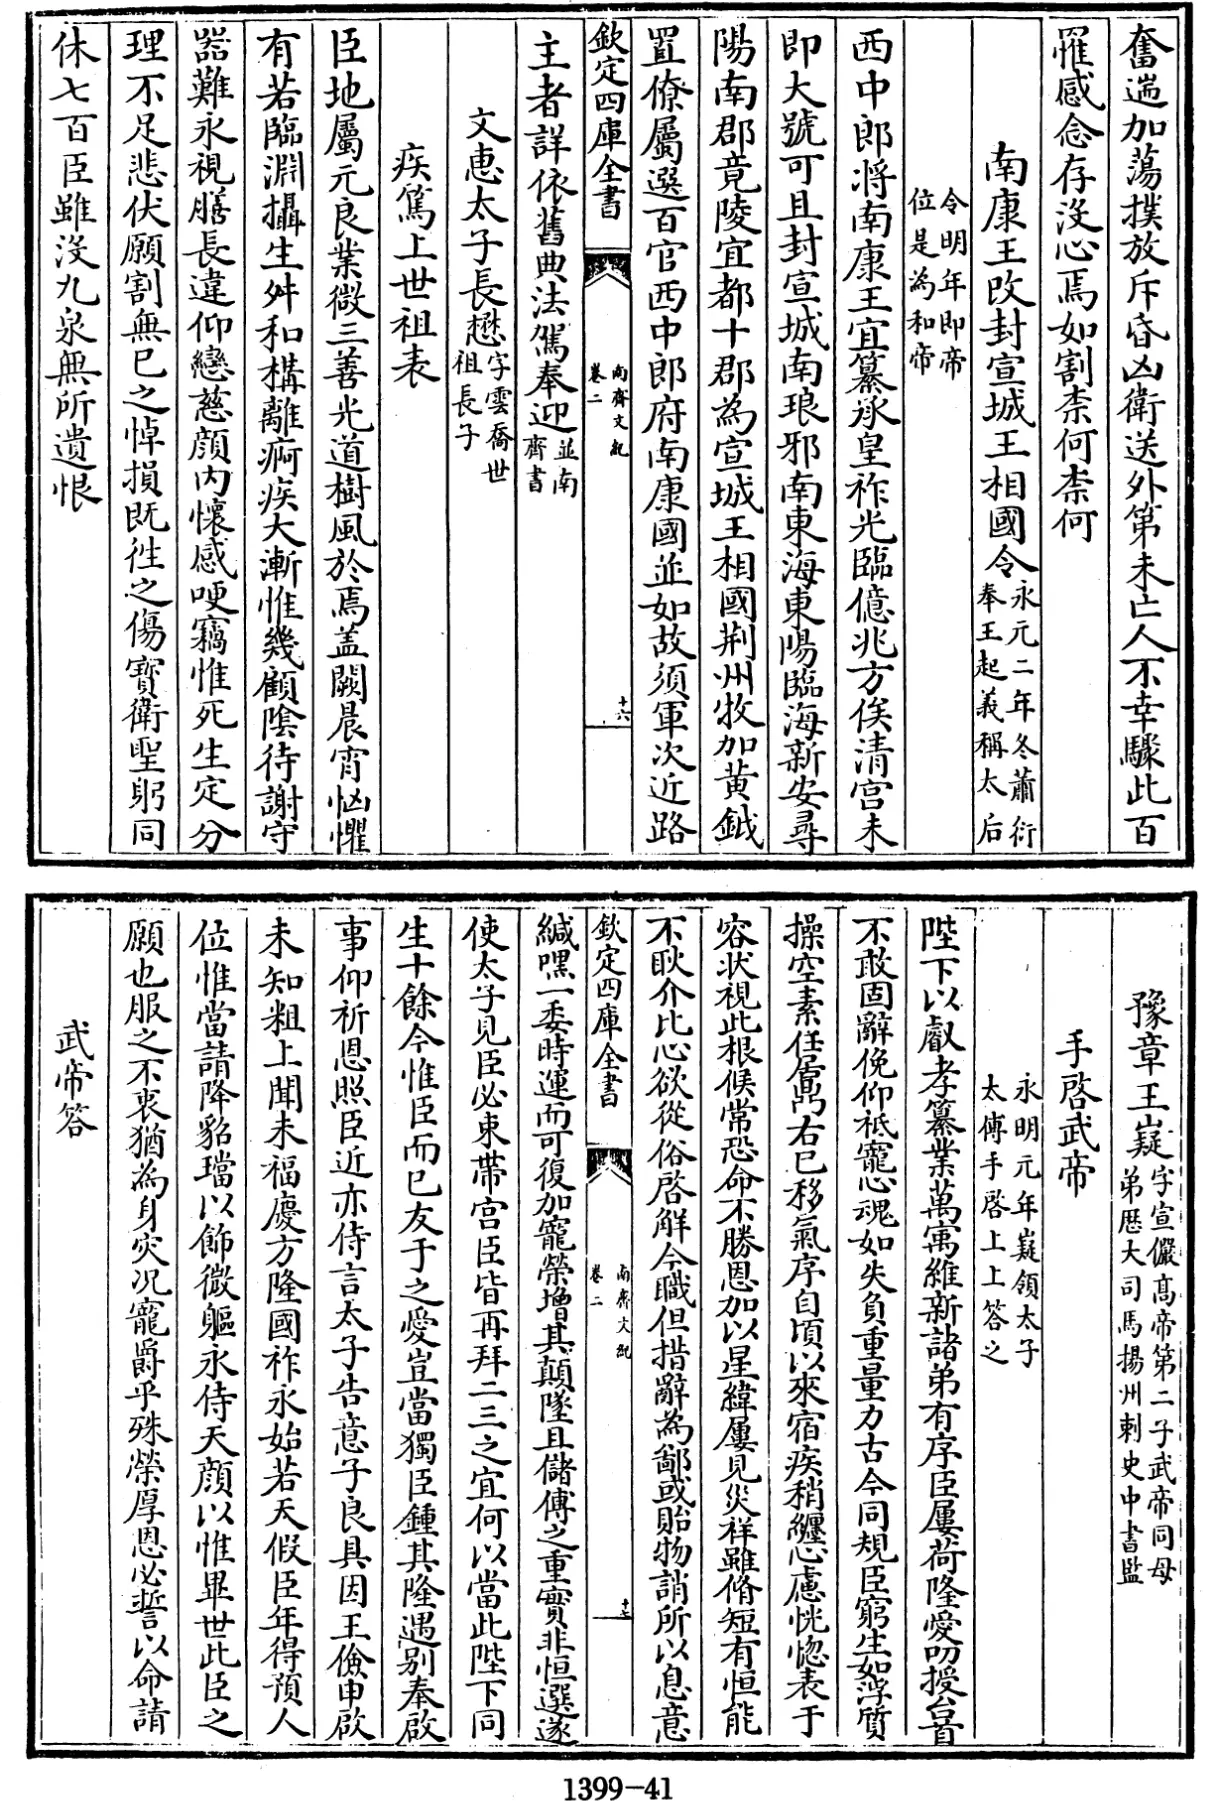 奮遄加蕩撲放斥昏凶衛送外第未亡人不幸驟此百
罹感念存沒心焉如割柰何柰何
南康王改封宣城王相國令永元二年冬蕭衍奉王起義稱太后
令明年即帝位是為和帝
西中郎將南康王宜纂承皇祚光臨億兆方俟清宮未
即大號可且封宣城南琅邪南東海東陽臨海新安尋
陽南郡竟陵宜都十郡為宣城王相國荆州牧加黃鉞
置僚屬選百官西中郎府南康國並如故須軍次近路
欽定四庫全書
南齊文紀
卷二
十六
主者詳依舊典法駕奉迎並南齊書
文惠太子長懋字雲喬世祖長子
疾篤上世祖表
臣地屬元良業微三善光道樹風於焉蓋闕晨宵忷懼
有若臨淵攝生舛和構離痾疾大漸惟幾顧陰待謝守
器難永視膳長違仰戀慈顏內懷感哽竊惟死生定分
理不足悲伏願割無已之悼損既徃之傷寶衛聖躬同
休七百臣雖沒九泉無所遺恨
豫章王嶷字宣儼高帝第二子武帝同母弟歷大司馬揚州刺史中書監
手啓武帝
永明元年嶷領太子太傅手啓上上答之
陛下以叡孝纂業萬㝢維新諸弟有序臣屢荷隆愛叨授台首
不敢固辭俛仰祇寵心魂如失負重量力古今同規臣窮生如浮質
操空素任居鼎右已移氣序自頃以來宿疾稍纏心慮恍惚表于
容狀視此根候常恐命不勝恩加以星緯屢見災祥雖脩短有恒能
不耿介比心欲從俗啓解今職但措辭為鄙或貽物誚所以息意
欽定四庫全書
南齊文紀
卷二
十七
緘嘿一委時運而可復加寵榮增其顛墜且儲傅之重實非恒選遂
使太子見臣必束帶宮臣皆再拜二三之宜何以當此陛下同
生十餘今惟臣而已友于之愛豈當獨臣鍾其隆遇别奉啟
事仰祈恩照臣近亦侍言太子告意子良具因王儉申啟
未知粗上聞未福慶方隆國祚永始若天假臣年得預人
位惟當請降貂璫以飾微軀永侍天顏以惟畢世此臣之
願也服之不衷猶為身災况寵爵乎殊榮厚恩必誓以命請
武帝答
1399-41